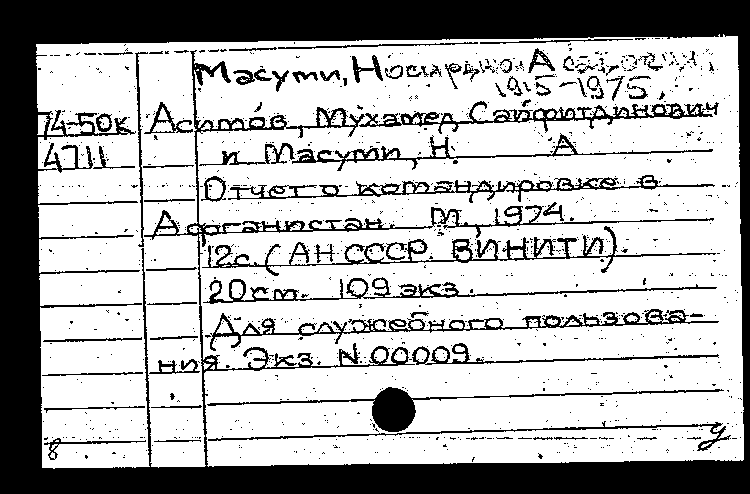 Масуми, Носирджон Асадович,
1915-1975.
74-50к Асимов, Мухамед Сайфитдинович
4711 и Масуми, Н. А
Отчет о командировке в
Афганистан. М., 1974.
12с. (АН СССР. ВИНИТИ).
20см. 109 экз.
Для служебного пользова-
ния. Экз. N 00009.
8 у